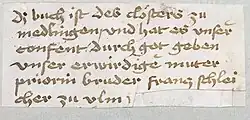 dz buch ist des closters zu
medlingen und hat es unser
confent durch got geben
unser erwirdige muter
priorin bruder franz schlei
cher zu ulm